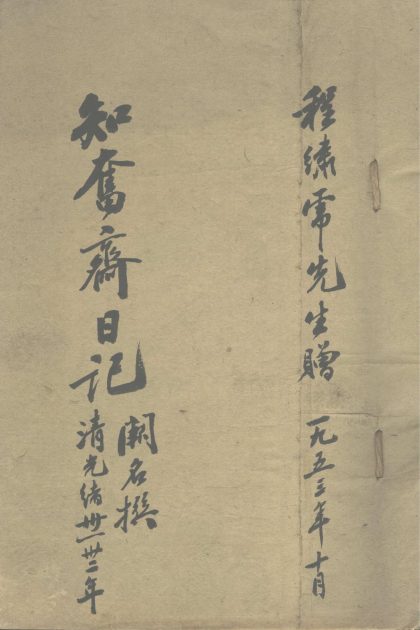 程繡霈先生贈 一九五三年十月
知奮齋日記
闕名撰
清光緒卅一卅二年